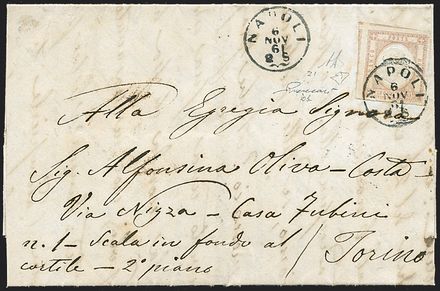 NAPOLI
6
NOV
61
2 S
NAPOLI
6
NOV
61
Alla Egregia Signora
Sig. Alfonsina Oliva-Costa
Via Nizza - Casa Tubini
n. 1 - Scala in fondo al
cortile - 2° piano
Torino